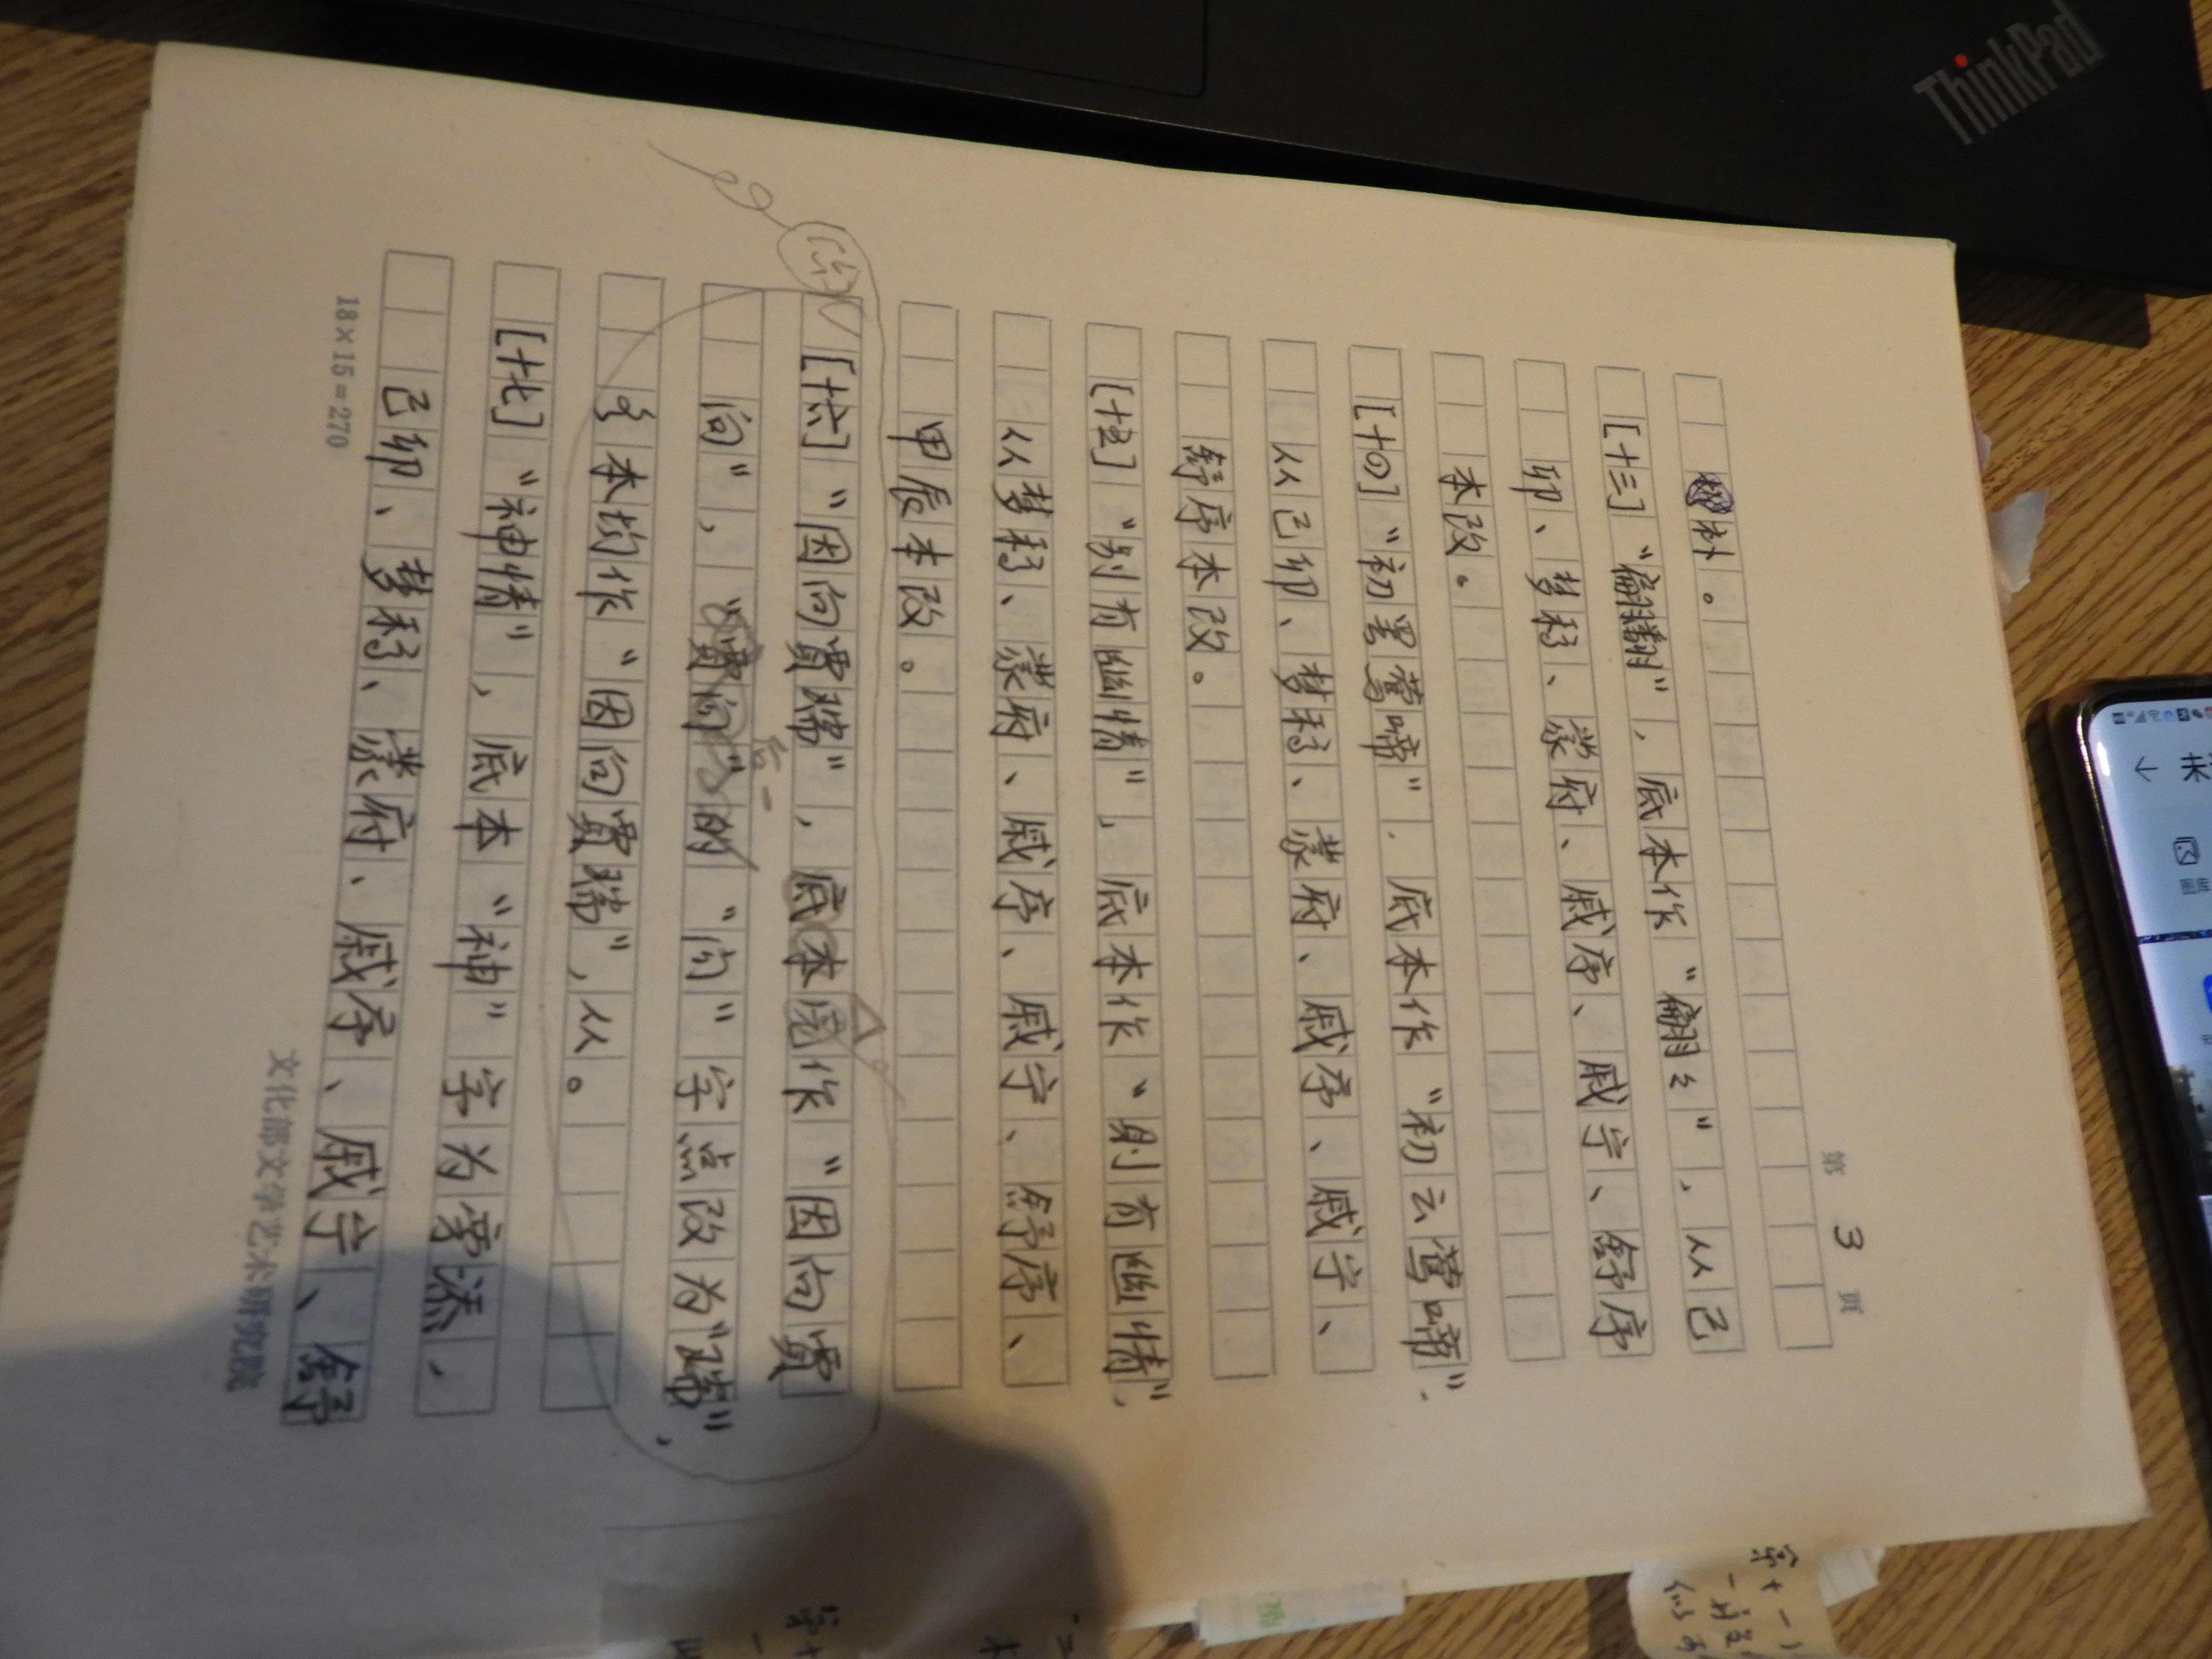 第 3 页
补。
[十三]“翩翻”，底本作“翩々”，从己
卯、梦稿、蒙府、戚序、戚宁、舒序
本改。
[十四]“初罢莺啼”，底本作“初云莺啼”，
从己卯、梦稿、蒙府、戚序、戚宁、
舒序本改。
[十五]“别有幽情”，底本作“则有幽情”，
从梦稿、蒙府、戚序、戚宁、舒序、
甲辰本改。
[十六]“因向贾瑞”，底本作“因向贾
向”，后一的“向”字点改为“瑞”，
各本均作“因向贾瑞”，从。
[十七]“神情”，底本“神”字为旁添，
己卯、梦稿、蒙府、戚序、戚宁、舒
18×15=270
文化部文学艺术研究院
ThinkPad